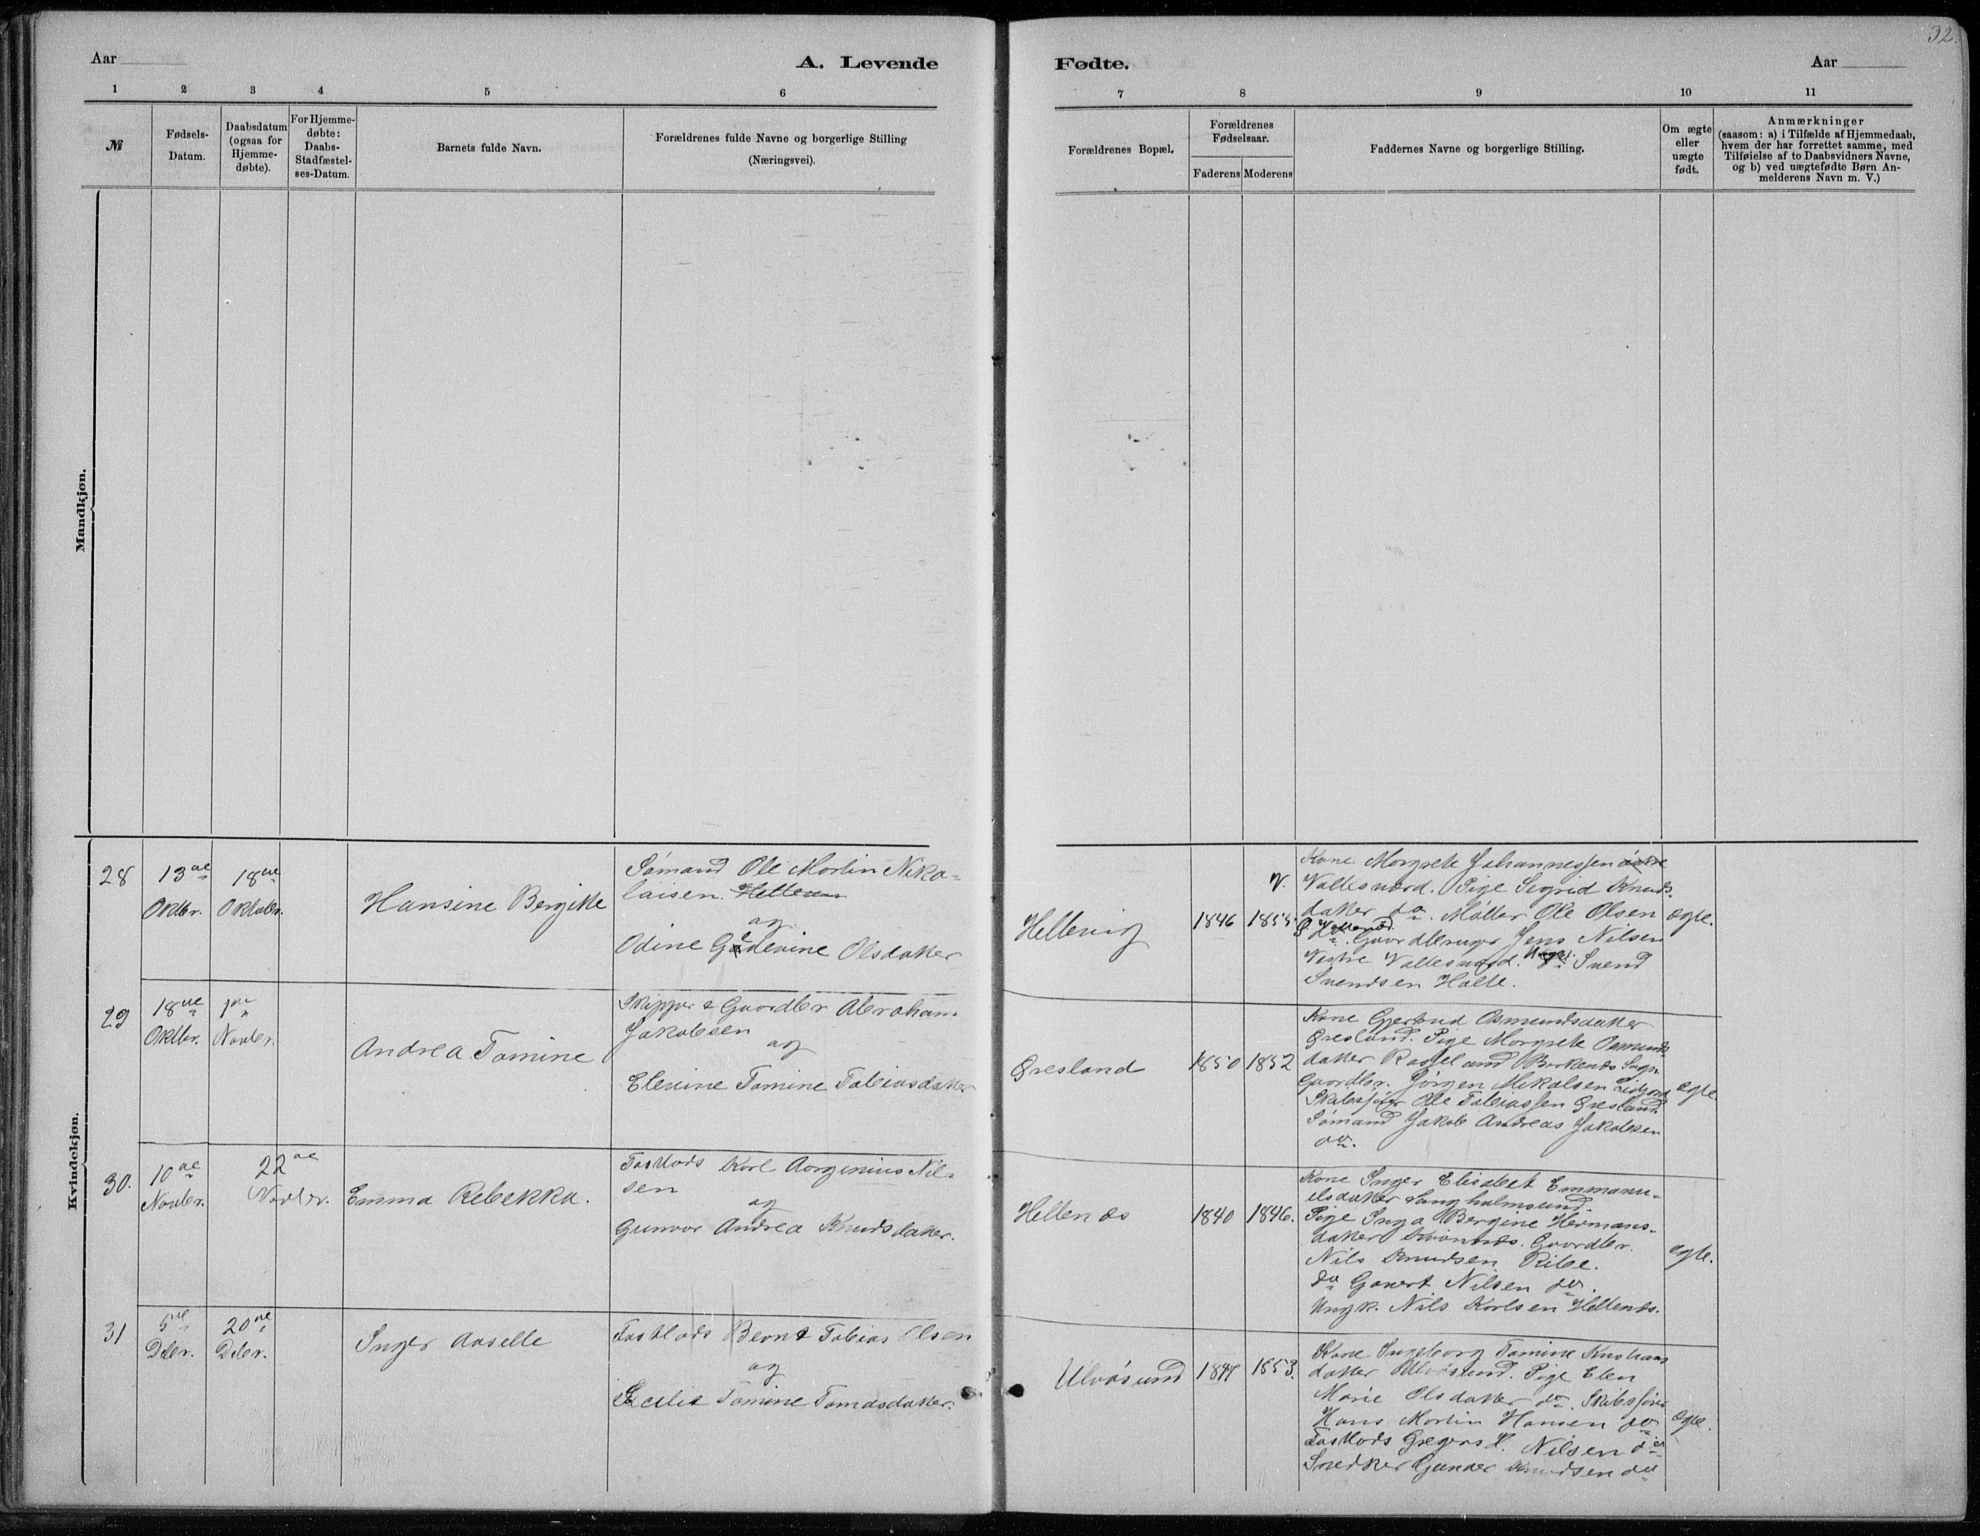 32.
Aar
A. Levende
Fødte.
Aar
1 2 3 4 5 6 7 8 9 10 11
№
Fødsels-
Datum.
Daabsdatum
(ogsaa for
Hjemme-
døbte).
For Hjemme-
døbte:
Daabs-
Stadfæstel-
ses-Datum.
Barnets fulde Navn.
Forældrenes fulde Navne og borgerlige Stilling
(Næringsvei).
Forældrenes Bopæl.
Forældrenes
Fødselsaar.
Faderens Moderens
Faddernes Navne og borgerlige Stilling.
Om ægte
eller
uægte
født.
Anmærkninger
(saasom: a) i Tilfælde af Hjemmedaab,
hvem der har forrettet samme, med
Tilføielse af to Daabsvidners Navne,
og b) ved uægtefødte Børn An-
melderens Navn m. V.)
Mandkjøn.
Kvindekjøn.
28
13de
Oktbr.
18de
Oktober.
Hansine Bergitte
Sømand Ole Martin Niko-
laisen
og
Odine Gedevine Olsdatter
Hellevig
1846 1855
Kone Margrete Johannessen
V. Valtesnæed. Pige Sigrid Knuds
datter do. Møller Ole Olsen
Gaardbruger Jens Nilsen
Vestre Valtesnæed. Ungk. Svend
Svendsen Halte.
ægte.
29
18de
Oktbr.
1ste
Novbr.
Andrea Tomine
Skipper & Gaardbr Abraham
Jakobsen
og
Elevine Tomine Tobiasdatter
Øresland
1850 1852
Kone Gjertrud Osmundsdatter
Øresland. Pige Margrete Osmunds
datter
Gaardbr. Jørgen Mikalsen
Skibsfører Ole Tobiassen Øresland
Sømand Jakob Andreas Jakobsen
do.
ægte
30.
10de
Novbr.
22de
Novbr.
Emma Rebekka.
Fastlods Karl Jorginius Nil-
sen
og
Gunvor Andrea Knudsdatter.
Hellenæs
1840 1846.
Kone Inger Elisabet Emmanu-
elsdatter Langholmsund.
Pige Inga Bergine Hermans-
datter Gaardbr.
Nils Knudsen Ribe.
do Govert Nilsen do.
Ungk. Nils Karlsen Hellenæs.
ægte.
31
5te
Dcbr.
20de
Dcbr.
Inger Aaselle
Fastlods Bernt Tobias Olsen
og
Secilie Tomine Tomasdatter.
Ulvøsund
1847 1853.
Kone Ingeborg Tomine
datter Ulvøsund. Pige Elen
Marie Olsdatter do. Skibsfører
Hans Martin Hansen do
Fastlods Gregers H. Nilsen do
Snedker Gunder Knudsen do
ægte.